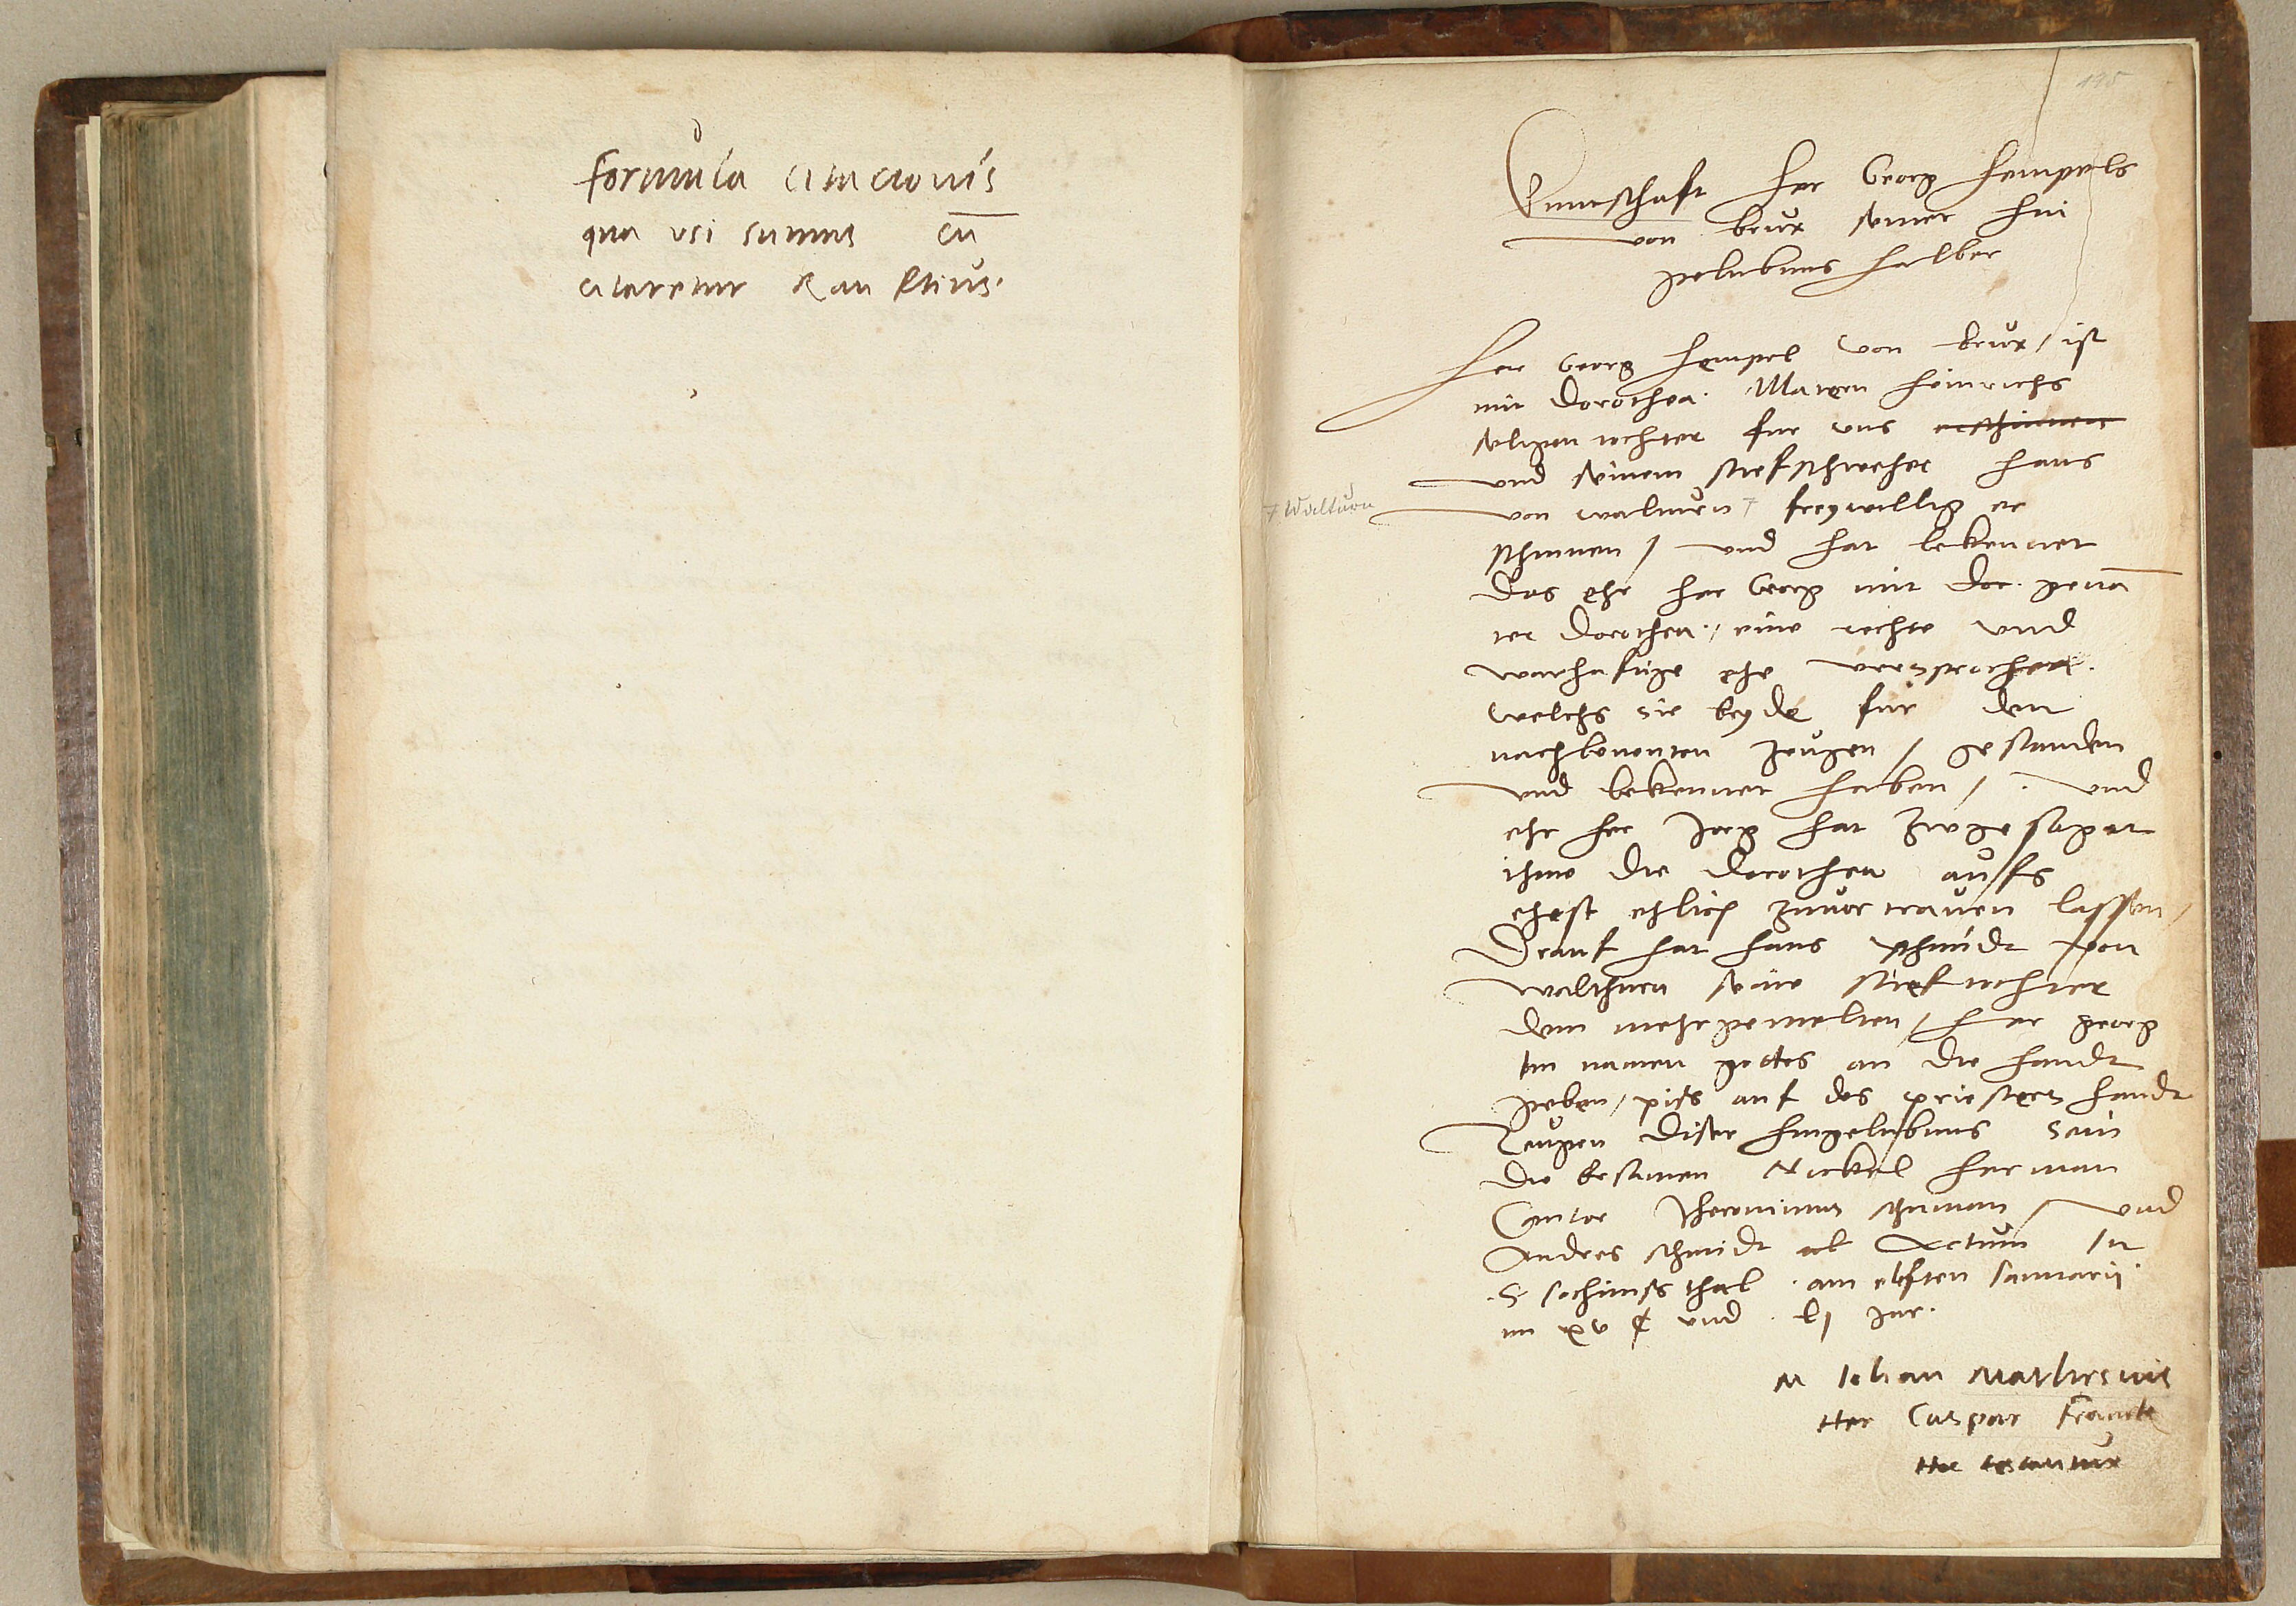 formula citacionis
qua usi sumus cū
citaretur
195
Kuntschaft her Georg hempels
von brux seiner hin
gelubnus halber
her Georg hempel von brux / ist
mit dorothea. Marten heinrichs
seligen tochter fur uns erschinnen
und seinem stiefschweher hans
von walturn ⁊ freywillig er
⁊ Walturn
schinnen / und hat bekennet
das ehr her Georg mit dor. genā
ter dorothea. / eine rechte und
warhaftige ehe versprochen.
welchs sie beyde fur den
nachbenenten zeugen / gestanden
und bekennet haben / . und
ehr her Jorg hat zugesaget
ihme die dorothea auffs
ehest ehlich zuvortrauen lassen /
Drauf hat hans schmidt von
walthurn seine stieftochter
dem mehrgemelten / her georg
Im namen gottes an die handt
geben / piss auf des priesters handt
Zeugen diser hingelubnus sein
die ersamen Nickel herman
Cantor Iheronimus schuman / und
Andres schmidt Actum In
S Jochimssthal . am elften Januarii
im xv ₵ und . lj Jar.
M Iohan Mathesius
Her Caspar Franck
Hec testantur